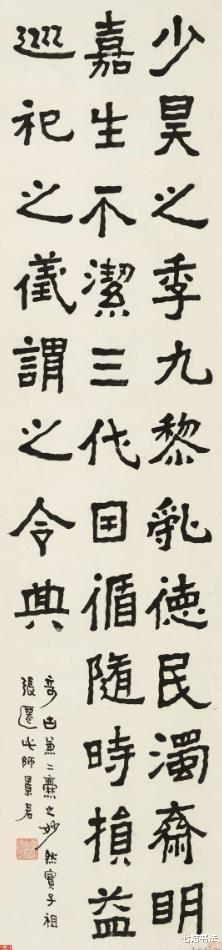 少昊之季九黎亂德民濁齋明
嘉生不潔三代因循隨時損益
巡祀之儀謂之令典
奇古兼二爨之妙然實子祖
張遷師景君
书法